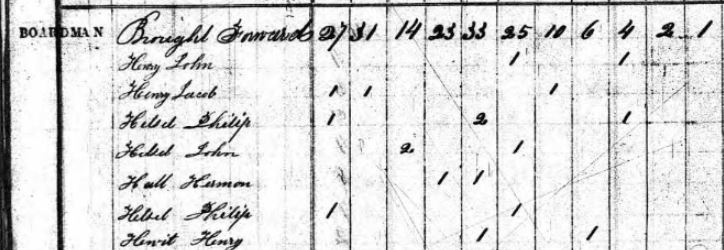 BOARDMAN Brought Forward 27 31 14 23 33 25 10 6 4 2 1
Henry John 1 1
Henry Jacob 1 1 1
Helsel Philip 1 2 1
Helsel John 2 1
Hall Hermon 1 1
Helsel Philip 1 1
Hewit Henry 1 1